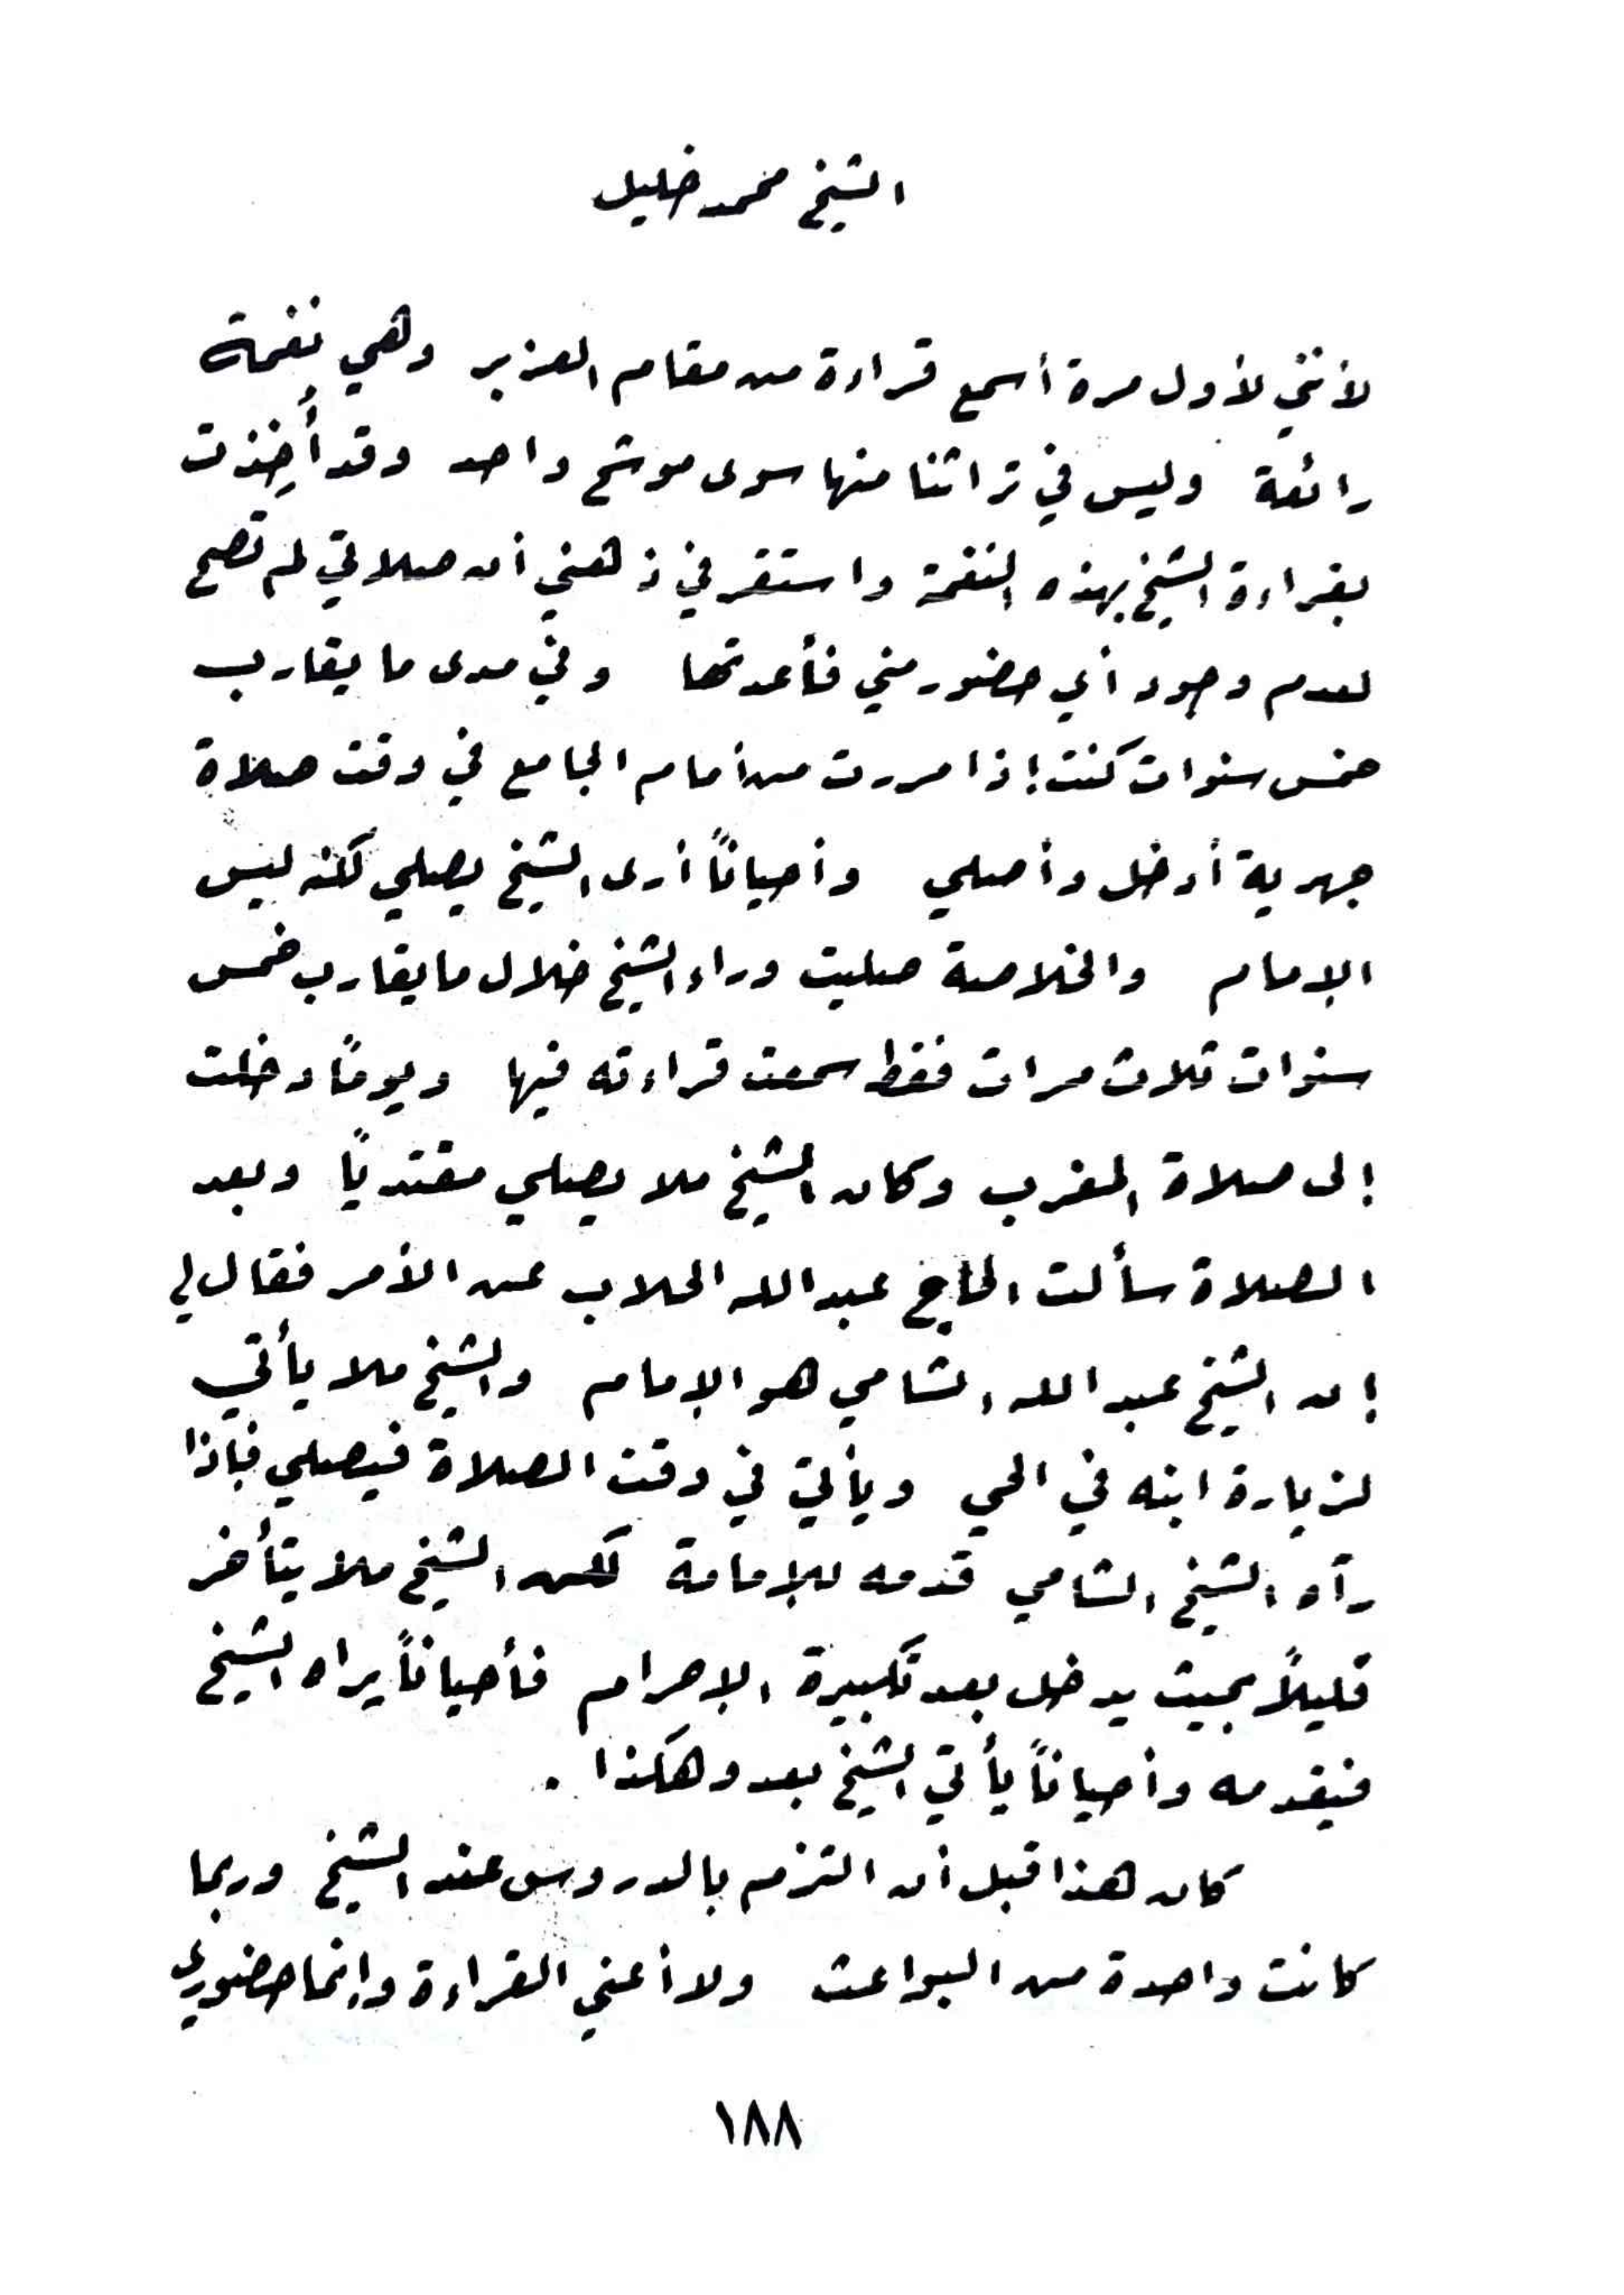 الشيخ محمد خليل
لأنني لأول مرة أسمع قراءة من مقام العزبر وهي نغمة
رائعة وليس في تراثنا منها سوى موشح واحد وقد أُخِذت
بقراءة الشيخ بهذه النغمة واستقر في ذهني أن صلاتي لم تصح
لعدم وجود أي حضور مني فأعدتها وفي مدى ما يقارب
خمس سنوات كنت إذا مررت من أمام الجامع في وقت صلاة
جهرية أدخل وأصلي وأحياناً أرى الشيخ يصلي لكنه ليس
الإمام والخلاصة صليت وراء الشيخ خلال ما يقارب خمس
سنوات ثلاث مرات فقط سمعت قراءته فيها ويوماً دخلت
إلى صلاة المغرب وكان الشيخ ملا يصلي مقتدياً وبعد
الصلاة سألت الحاج عبد الله الحلاب عن الأمر فقال لي
إن الشيخ عبد الله الشامي هو الإمام والشيخ ملا يأتي
لزيارة ابنه في الحي ويأتي في وقت الصلاة فيصلي فإذا
رآه الشيخ الشامي قدمه للإمامة لكن الشيخ ملا يتأخر
قليلاً بحيث يدخل بعد تكبيرة الإحرام فأحياناً يراه الشيخ
فيقدمه وأحياناً يأتي الشيخ بعد وهكذا .
كان هذا قبل أن التزم بالدروس عند الشيخ وربما
كانت واحدة من البواعث ولا أعني القراءة وإنما حضوري
١٨٨